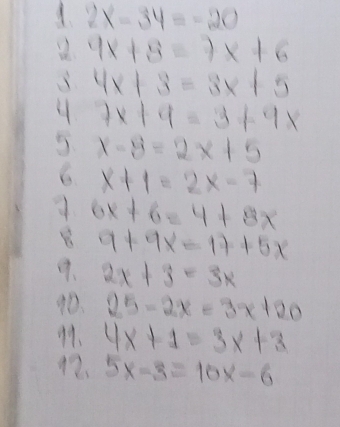 1. 2x - 34 = -20
2. 9x + 8 = 7x + 6
3. 4x + 3 = 3x + 5
4. 7x + 9 = 3 + 9x
5. x - 8 = 2x + 5
6. x + 1 = 2x - 7
7. 6x + 6 = 4 + 8x
8. 9 + 9x = 17 + 5x
9. 2x + 3 = 3x
10. 25 - 2x = 3x + 20
11. 4x + 1 = 3x + 3
12. 5x - 3 = 10x - 6